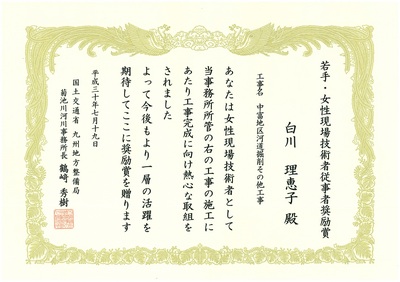 若手・女性現場技術者従事者奨励賞
工事名 中富地区河道掘削その他工事
白川 理恵子 殿
あなたは女性現場技術者として
当事務所所管の右の工事の施工に
あたり工事完成に向け熱心な取組を
されました
よって今後もより一層の活躍を
期待してここに奨励賞を贈ります
平成三十年七月十九日
国土交通省 九州地方整備局
菊池川河川事務所長 鶴﨑 秀樹